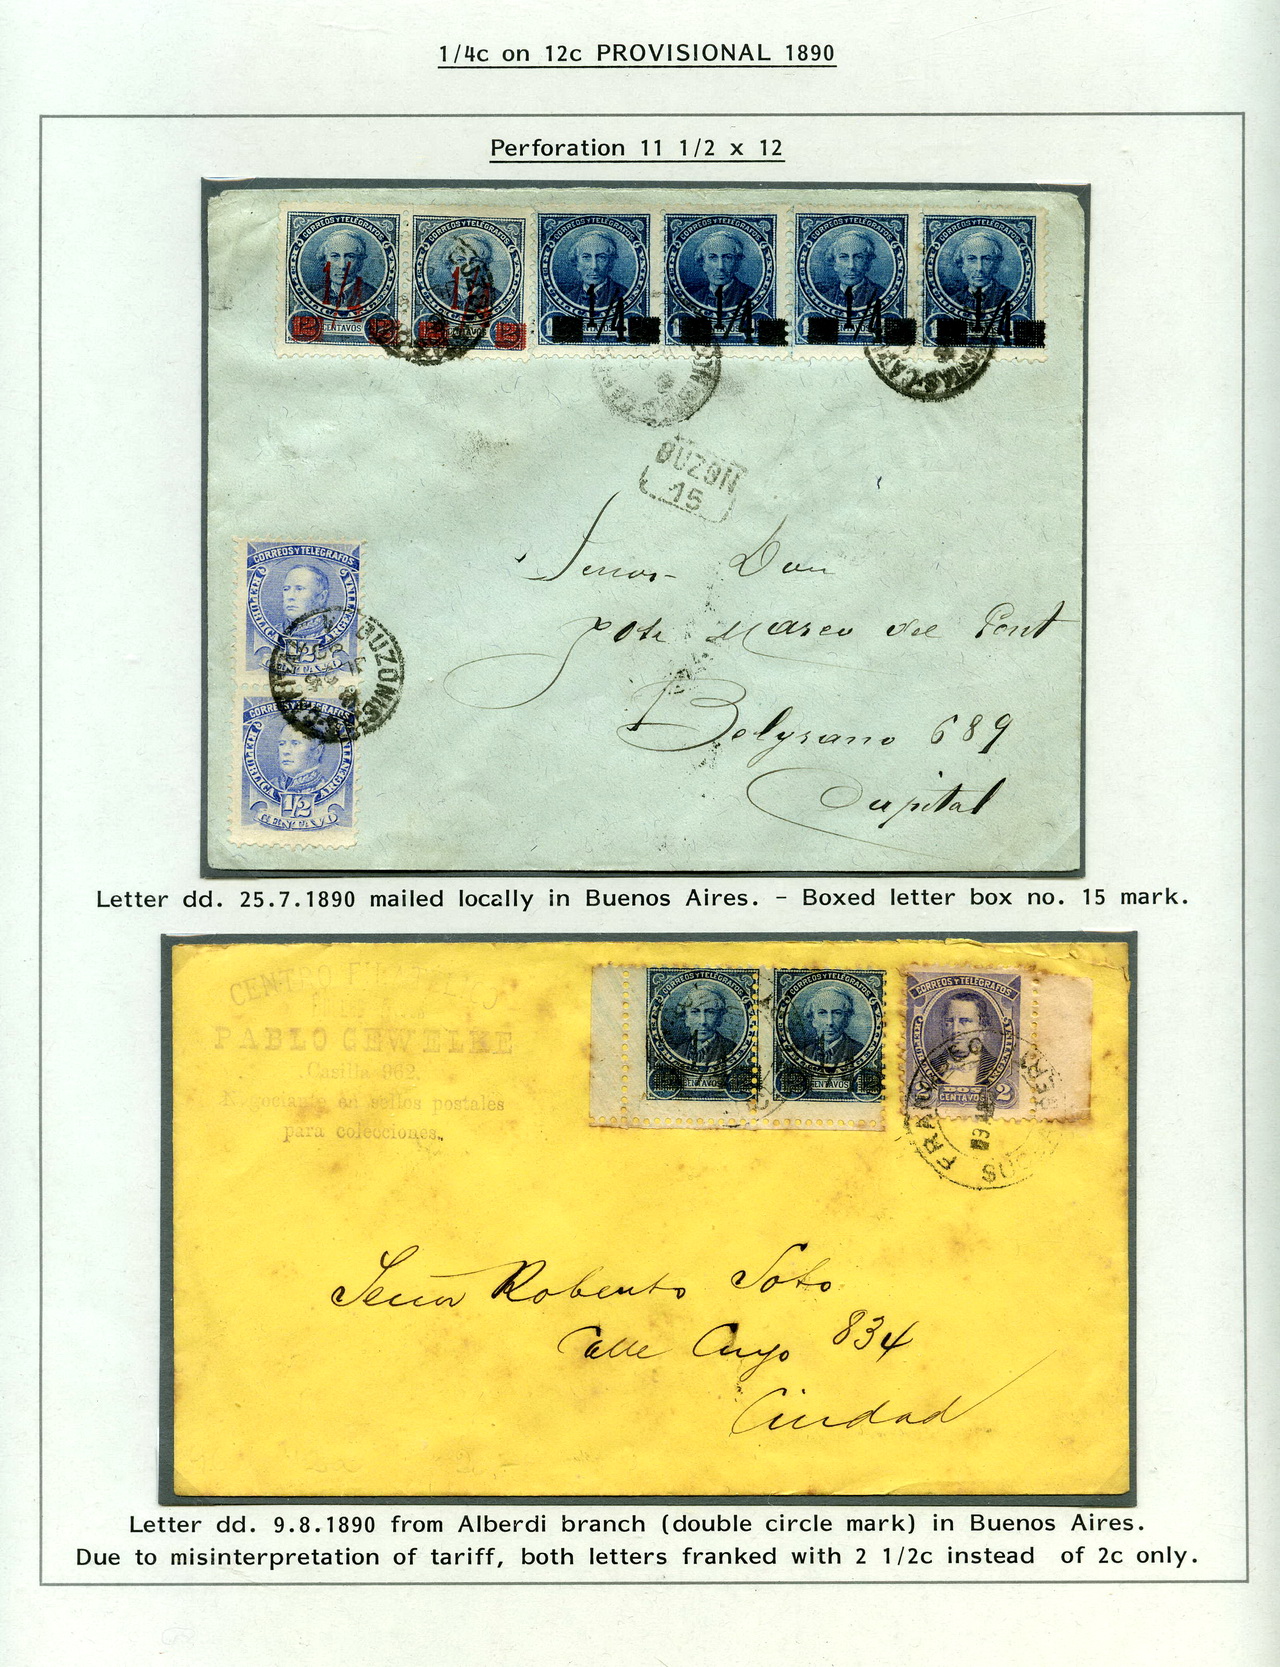 1/4c on 12c PROVISIONAL 1890
Perforation 11 1/2 x 12
CORREOS Y TELÉGRAFOS CORREOS Y TELÉGRAFOS CORREOS Y TELÉGRAFOS CORREOS Y TELÉGRAFOS CORREOS Y TELÉGRAFOS CORREOS Y TELÉGRAFOS
1/4 1/4 1/4 1/4 1/4 1/4
12 CENTAVOS 12 12 CENTAVOS 12
BUZON
15
Señor Don
José Marco del Pont
Belgrano 689
Capital
CORREOS Y TELEGRAFOS
REPUBLICA ARGENTINA
1/2
CENTAVO
BUZONISTAS
CORREOS Y TELEGRAFOS
REPUBLICA ARGENTINA
1/2
CENTAVO
Letter dd. 25.7.1890 mailed locally in Buenos Aires. - Boxed letter box no. 15 mark.
CENTRO FILATELICO
PABLO GEWELKE
Casilla 962.
Negociante en sellos postales
para colecciones.
CORREOS Y TELÉGRAFOS CORREOS Y TELÉGRAFOS
CENTAVOS CENTAVOS
CORREOS Y TELEGRAFOS
DOS
CENTAVOS 2
FRANQUEO
Señor Roberto Soto
Calle Cuyo 834
Ciudad
Letter dd. 9.8.1890 from Alberdi branch (double circle mark) in Buenos Aires.
Due to misinterpretation of tariff, both letters franked with 2 1/2c instead of 2c only.